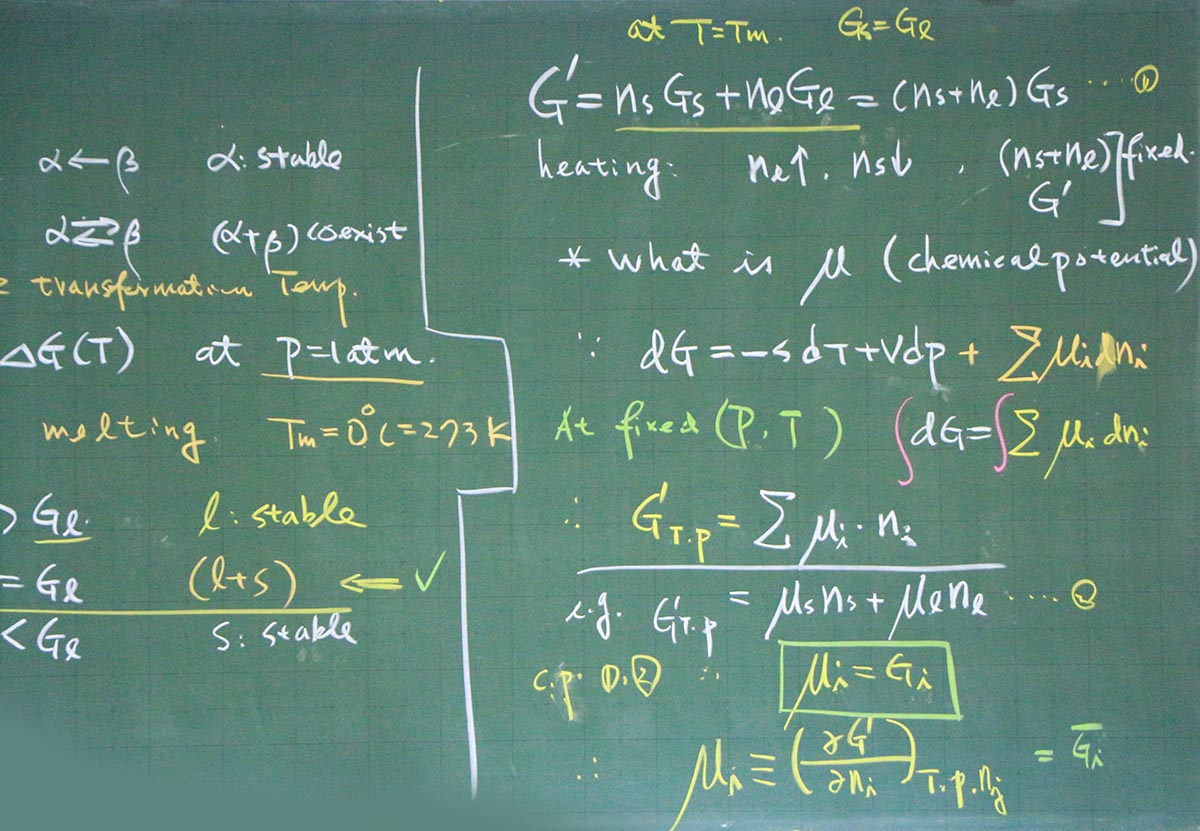 α ← β α: stable
α ⇄ β (α+β) coexist
transformation Temp.
ΔG(T) at p=1atm.
melting. Tm=0°C=273K
> Gℓ. ℓ: stable
= Gℓ (ℓ+s) ⇐ ✓
< Gℓ s: stable
at T=Tm. Gs=Gℓ
G'=nsGs+nℓGℓ=(ns+nℓ)Gs ····①
heating: nℓ↑. ns↓ , (ns+nℓ) G' ] fixed.
* What is μ (chemical potential)
∵ dG=-sdT+Vdp+∑μidni
At fixed (P.T) ∫dG=∫∑μidni
∴ G'T.p=∑μi·ni
e.g. G'T.p=μsns+μℓnℓ ····②
c.p. ①.② ∴ μi=Gi
∴ μi≡(∂G'/∂ni)T.p.nj = G̅i